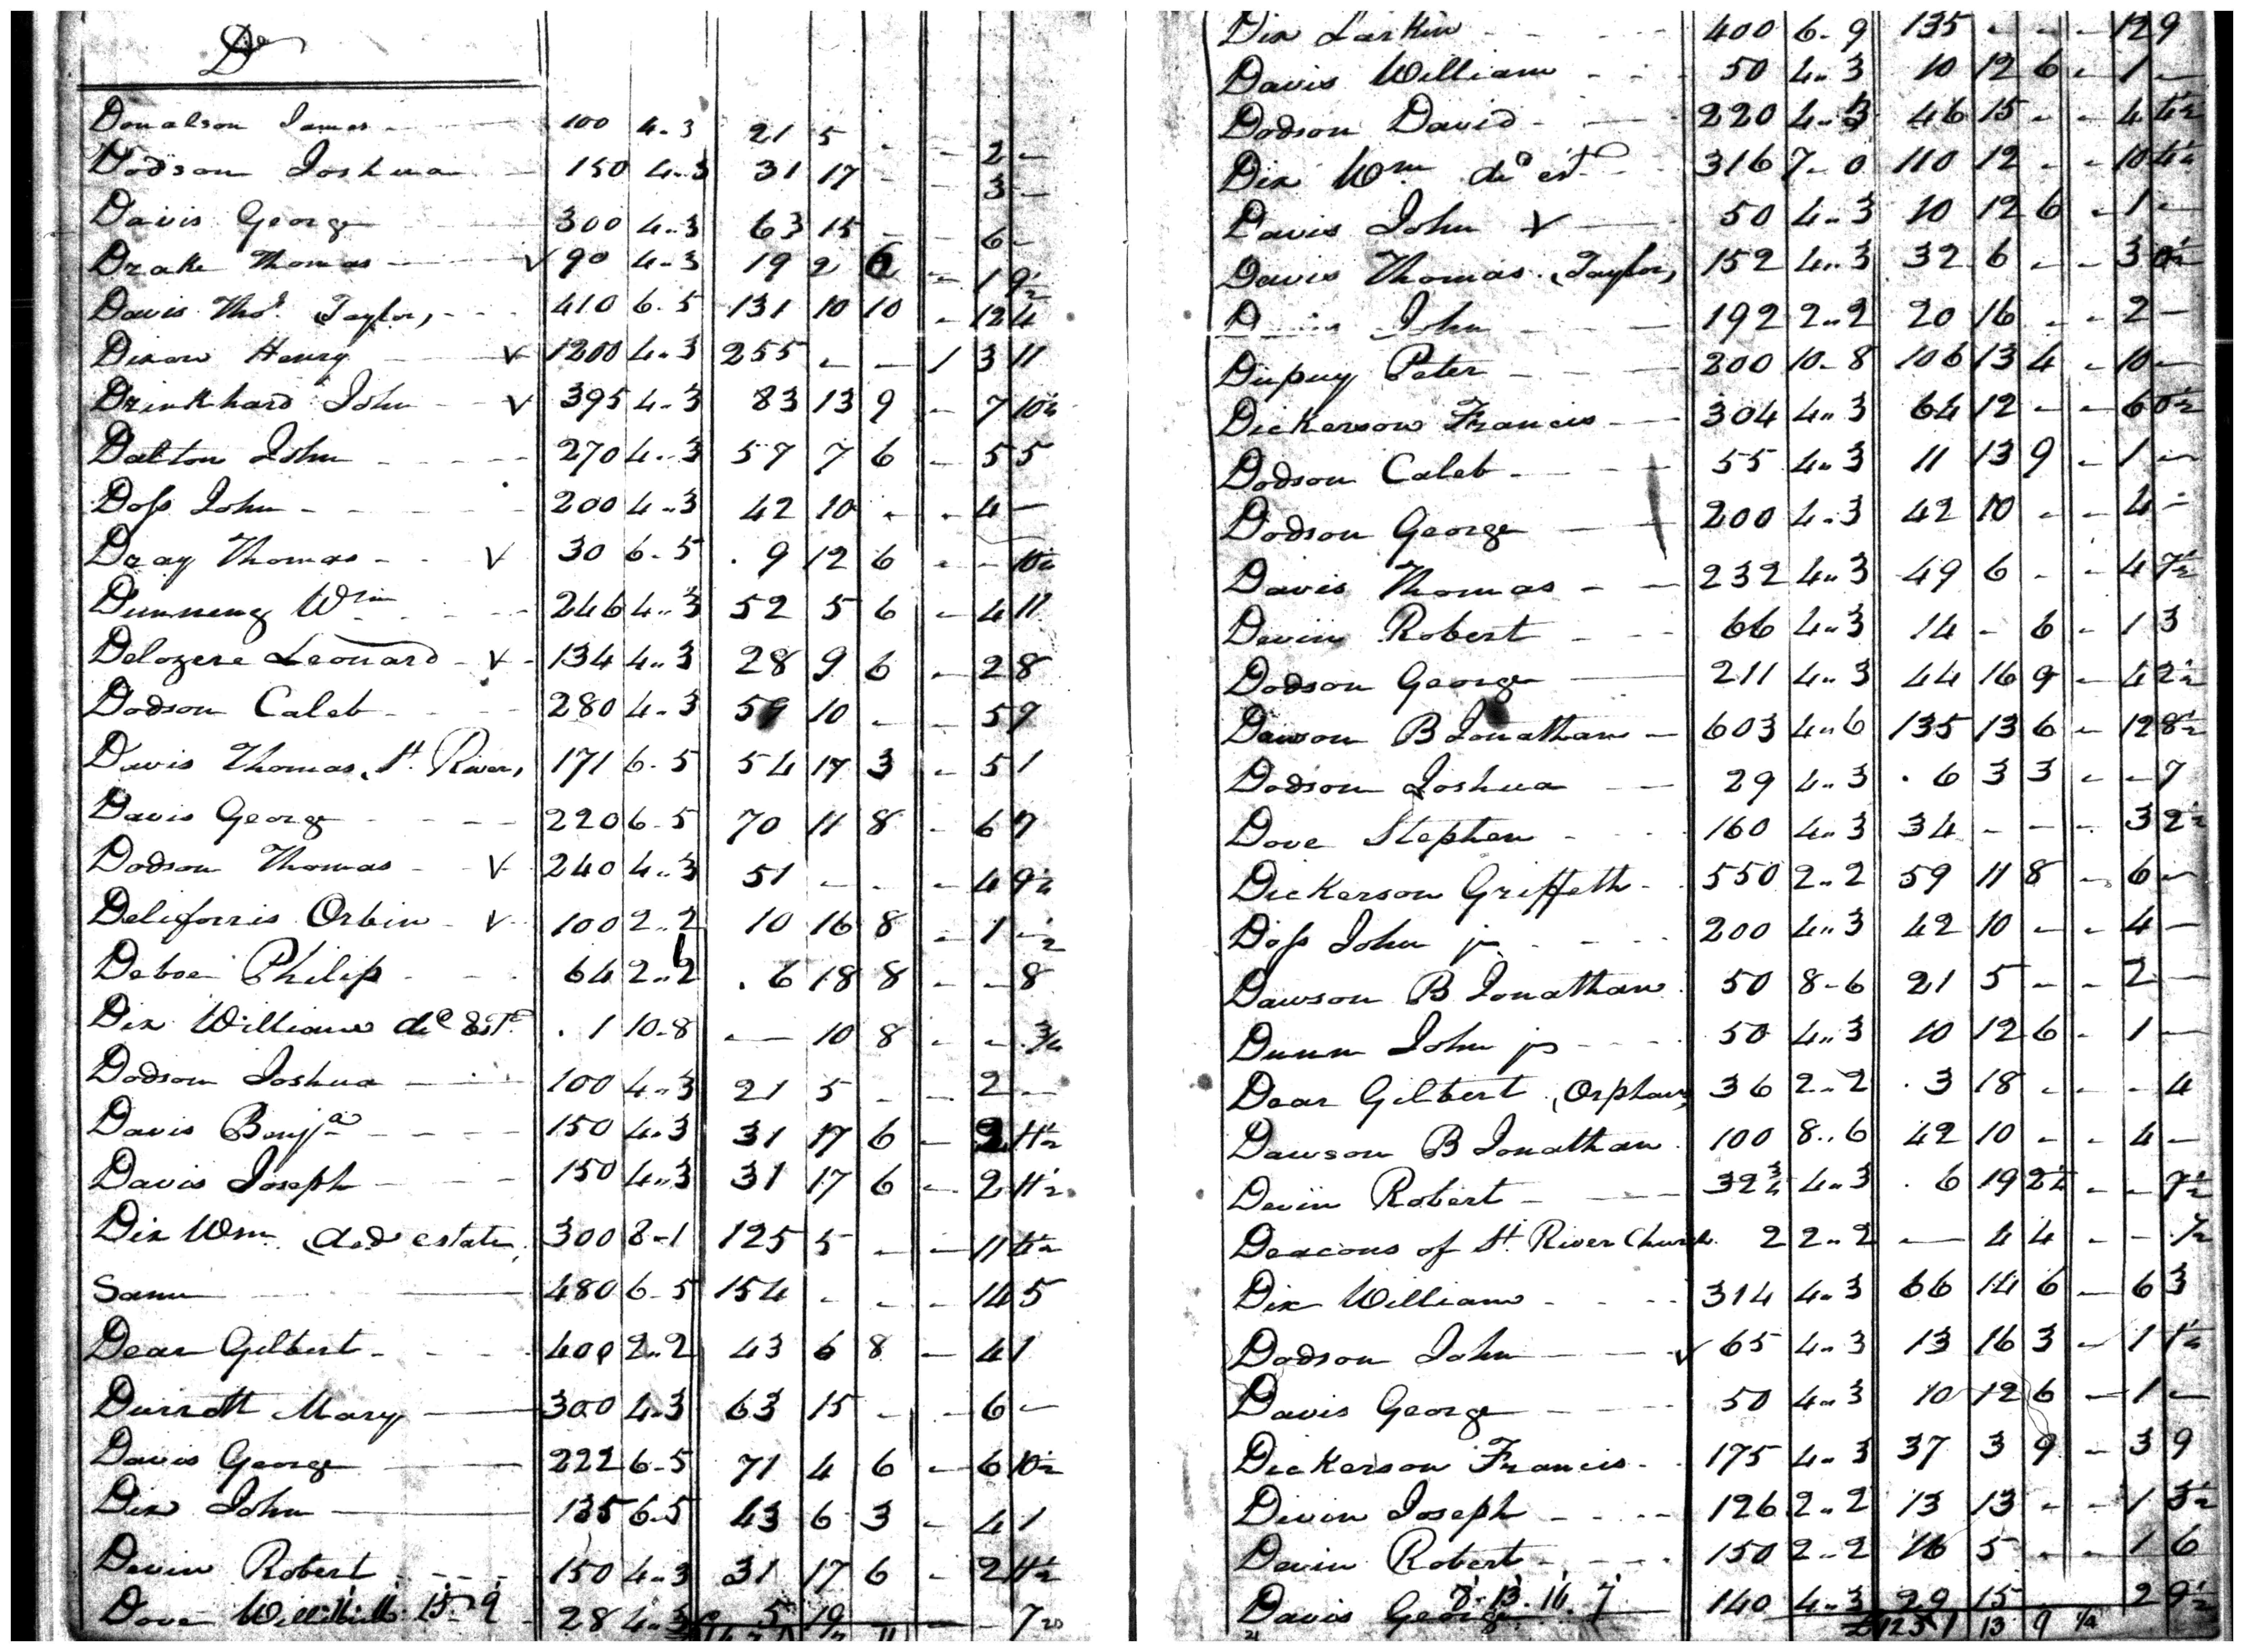 D
Donalson James 100 4..3 21 5 - - 2 -
Dodson Joshua 150 4..3 31 17 - - 3 -
Davis George 300 4..3 63 15 - - 6 -
Drake Thomas V 90 4..3 19 2 6 - 1 9½
Davis Thos. (Taylor) 410 6..5 131 10 10 - 12 4
Dixon Henry V 1200 4..3 255 - - 1 3 11
Drinkhard John V 395 4..3 83 13 9 - 7 10½
Dalton John 270 4..3 57 7 6 - 5 5
Doss John 200 4..3 42 10 - - 4 -
Dray Thomas V 30 6..5 9 12 6 - - 10¾
Dunning Wm 246 4..3 52 5 6 - 4 11
Delozere Leonard V 134 4..3 28 9 6 - 2 8
Dodson Caleb 280 4..3 59 10 - - 5 9
Davis Thomas (St. River) 171 6..5 54 17 3 - 5 1
Davis George 220 6..5 70 11 8 - 6 7
Dodson Thomas V 240 4..3 51 - - - 4 9½
Deliforris Orbin V 100 2..2 10 16 8 - 1 -½
Deboe Philip 64 2..2 6 18 8 - - 8
Dix William dec Este 1 10..8 - 10 8 - - ¾
Dodson Joshua 100 4..3 21 5 - - 2 -
Davis Benja 150 4..3 31 17 6 - 2 11½
Davis Joseph 150 4..3 31 17 6 - 2 11½
Dix Wm (decd estate) 300 8..1 125 5 - - 11 4½
Same 480 6..5 154 - - - 14 5
Dear Gilbert 400 2..2 43 6 8 - 4 1
Durrott Mary 300 4..3 63 15 - - 6 -
Davis George 222 6..5 71 4 6 - 6 10½
Dix John 135 6..5 43 6 3 - 4 1
Devin Robert 150 4..3 31 17 6 - 2 11½
Dove 28 4..3 5 19 - - 7
Dix Larkin 400 6..9 135 - - - 12 9
Davis William 50 4..3 10 12 6 - 1 -
Dodson David 220 4..3 46 15 - - 4 4½
Dix Wm dec est 316 7..0 110 12 - - 10 4½
Davis John V 50 4..3 10 12 6 - 1 -
Davis Thomas (Taylor) 152 4..3 32 6 - - 3 0½
John 192 2..2 20 16 - - 2 -
Dupuy Peter 200 10..8 106 13 4 - 10 -
Dickerson Francis 304 4..3 64 12 - - 6 0½
Dodson Caleb 55 4..3 11 13 9 - 1 -
Dodson George 200 4..3 42 10 - - 4 -
Davis Thomas 232 4..3 49 6 - - 4 7½
Devin Robert 66 4..3 14 - 6 - 1 3
Dodson George 211 4..3 44 16 9 - 4 2½
Dawson B Jonathan 603 4..6 135 13 6 - 12 8½
Dodson Joshua 29 4..3 6 3 3 - - 7
Dove Stephen 160 4..3 34 - - - 3 2½
Dickerson Griffeth 550 2..2 59 11 8 - 6 -
Doss John jr 200 4..3 42 10 - - 4 -
Dawson B Jonathan 50 8..6 21 5 - - 2 -
Dunn John jr 50 4..3 10 12 6 - 1 -
Dear Gilbert (Orphans) 36 2..2 3 18 - - - 4
Dawson B Jonathan 100 8..6 42 10 - - 4 -
Devin Robert 32¾ 4..3 6 19 2¼ - - 7½
Deacons of St. River Church 2 2..2 - 4 4 - - ½
Dix William 314 4..3 66 14 6 - 6 3
Dodson John V 65 4..3 13 16 3 - 1 1½
Davis George 50 4..3 10 12 6 - 1 -
Dickerson Francis 175 4..3 37 3 9 - 3 9
Divin Joseph 126 2..2 13 13 - - 1 3½
Devin Robert 150 2..2 16 5 - - 1 6
Davis George 140 4..3 29 15 2 9½
8. 13. 16. 7